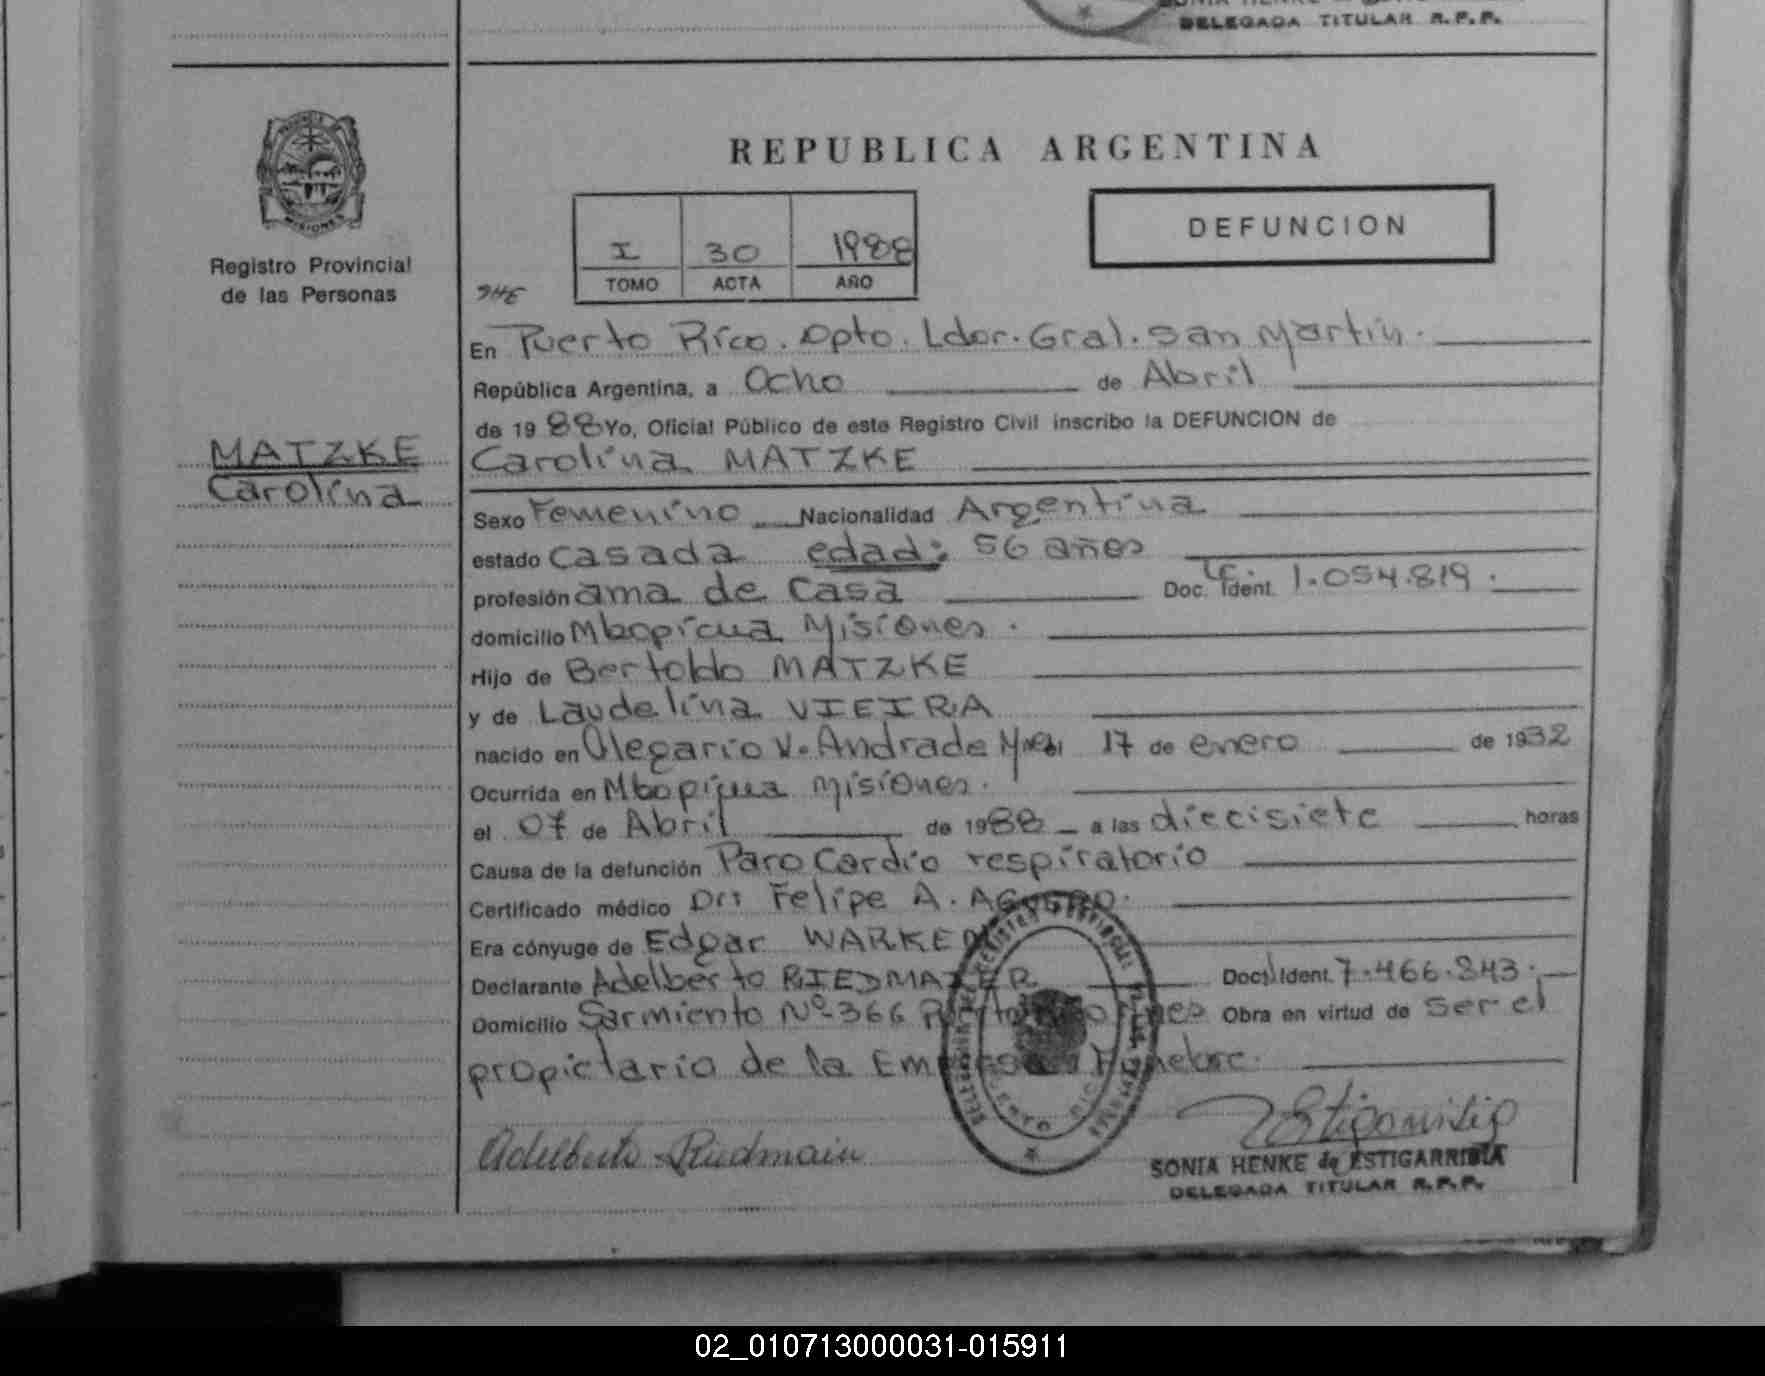 DELEGADA TITULAR R.P.P.
REPUBLICA ARGENTINA
I 30 1988
TOMO ACTA AÑO
DEFUNCION
MISIONES
Registro Provincial
de las Personas
SHE
MATZKE
Carolina
En Puerto Rico. Dpto. Ldor. Gral. San Martín.
República Argentina, a Ocho de Abril
de 1988 Yo, Oficial Público de este Registro Civil inscribo la DEFUNCION de
Carolina MATZKE
Sexo Femenino Nacionalidad Argentina
estado casada edad: 56 años
profesión ama de Casa Doc. Ident. 1.054.819.
domicilio Mbopicua Misiones.
Hijo de Bertoldo MATZKE
y de Laudelina VIEIRA
nacido en Olegario V. Andrade Mnes 17 de enero de 1932
Ocurrida en Mbopicua Misiones.
el 07 de Abril de 1988 a las diecisiete horas
Causa de la defunción Paro Cardio respiratorio
Certificado médico Dr: Felipe A. AGUERO.
Era cónyuge de Edgar WARKEN
Declarante Adelberto RIEDMAIER Doc. Ident. 7.466.843.
Domicilio Sarmiento Nº 366 Puerto Rico Mnes Obra en virtud de ser el
propietario de la Empresa Funebre.
Adelberto Riedmaier
SONIA HENKE de ESTIGARRIBIA
DELEGADA TITULAR R.P.P.
02_010713000031-015911